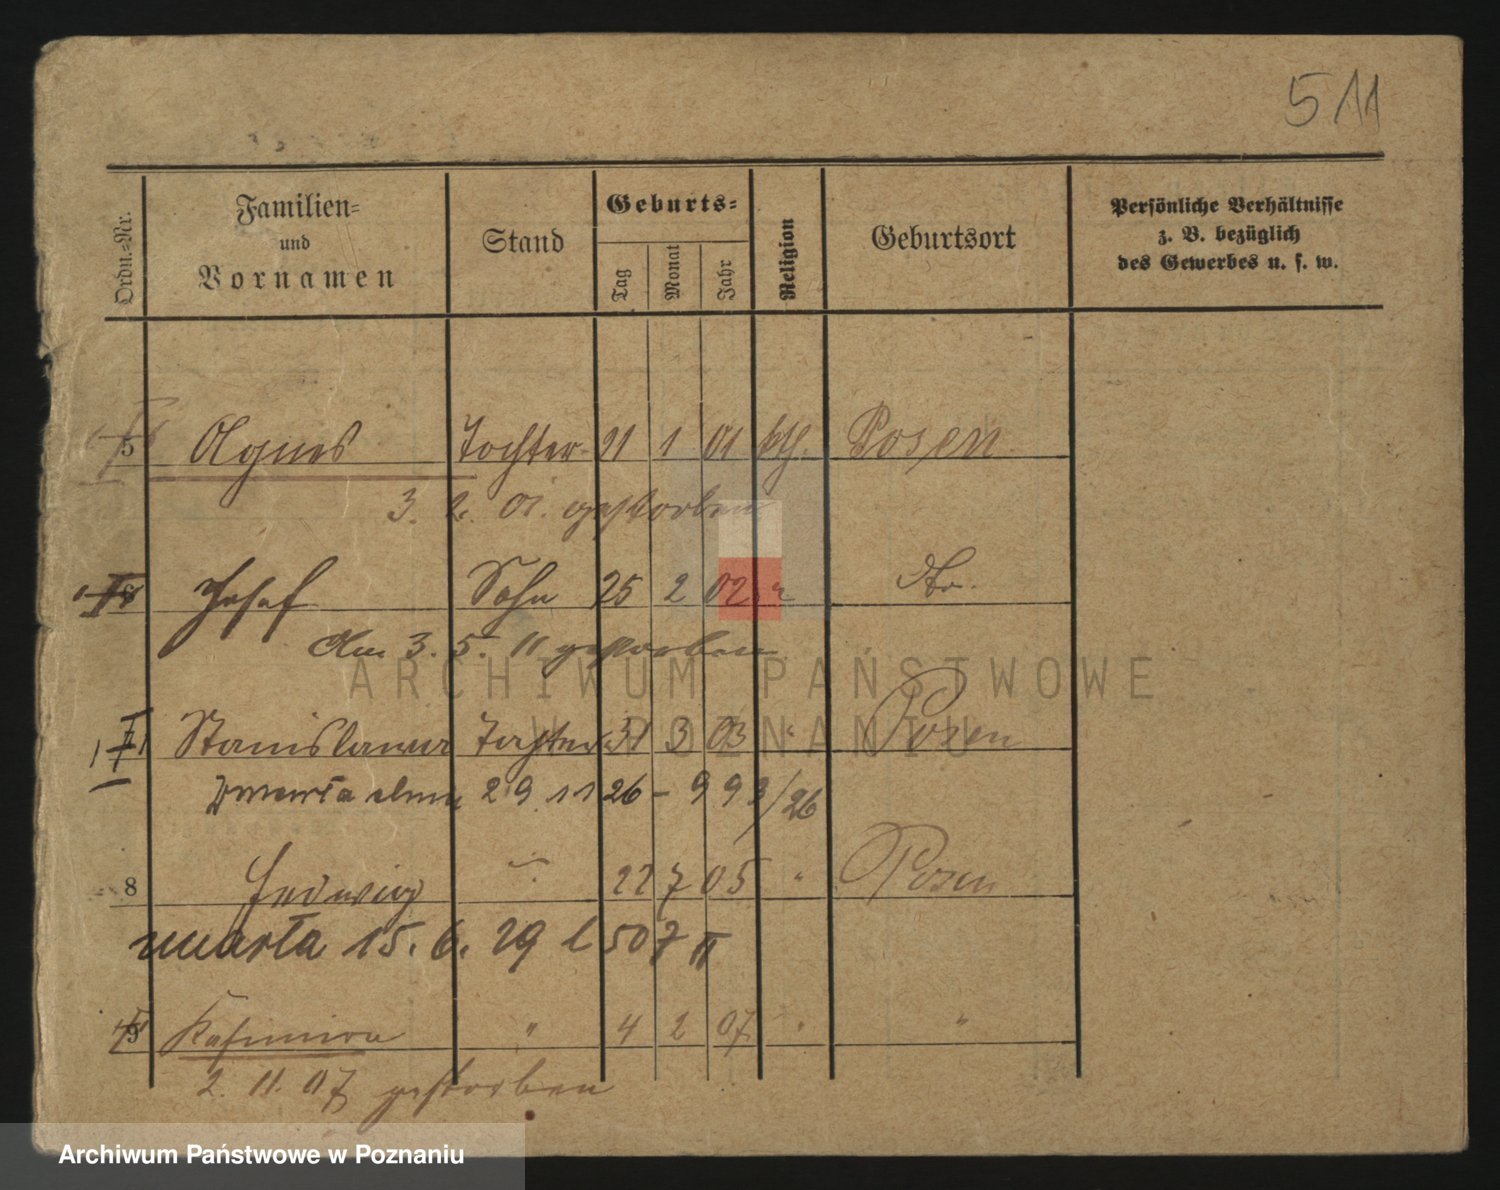 511
Ordn.-Nr.
Familien-
und
Vornamen
Stand
Geburts-
Tag
Monat
Jahr
Religion
Geburtsort
Persönliche Verhältnisse
z. B. bezüglich
des Gewerbes u. s. w.
5 Agnes Tochter 21 1 01 kth. Posen
3. 2. 01. gestorben
Josef Sohn 25 2 02 " do.
Am 3. 5. 11 gestorben
7 Stanislawa Tochter 31 3 03 " Posen
29 11 26 - 993/26
8 Hedwig " 22 7 05 " Posen
umarła 15. 6. 29 l 507 II
9 Kasimira " 4 2 07 " "
2. 11. 07 gestorben
ARCHIWUM PAŃSTWOWE
W POZNANIU
Archiwum Państwowe w Poznaniu